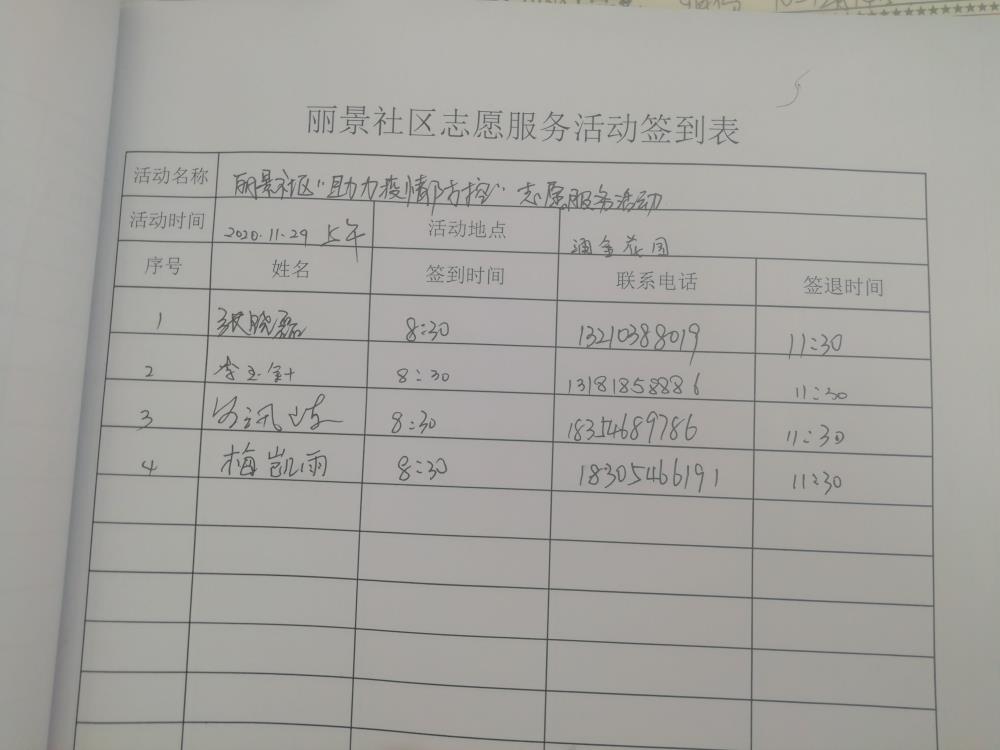 丽景社区志愿服务活动签到表
活动名称 丽景社区"助力疫情防控"志愿服务活动
活动时间 2020.11.29 上午 活动地点 通金花园
序号 姓名 签到时间 联系电话 签退时间
1 张晓磊 8:30 13210388019 11:30
2 李玉 8:30 13181858886 11:30
3 8:30 18354689786 11:30
4 梅凯雨 8:30 18305466191 11:30